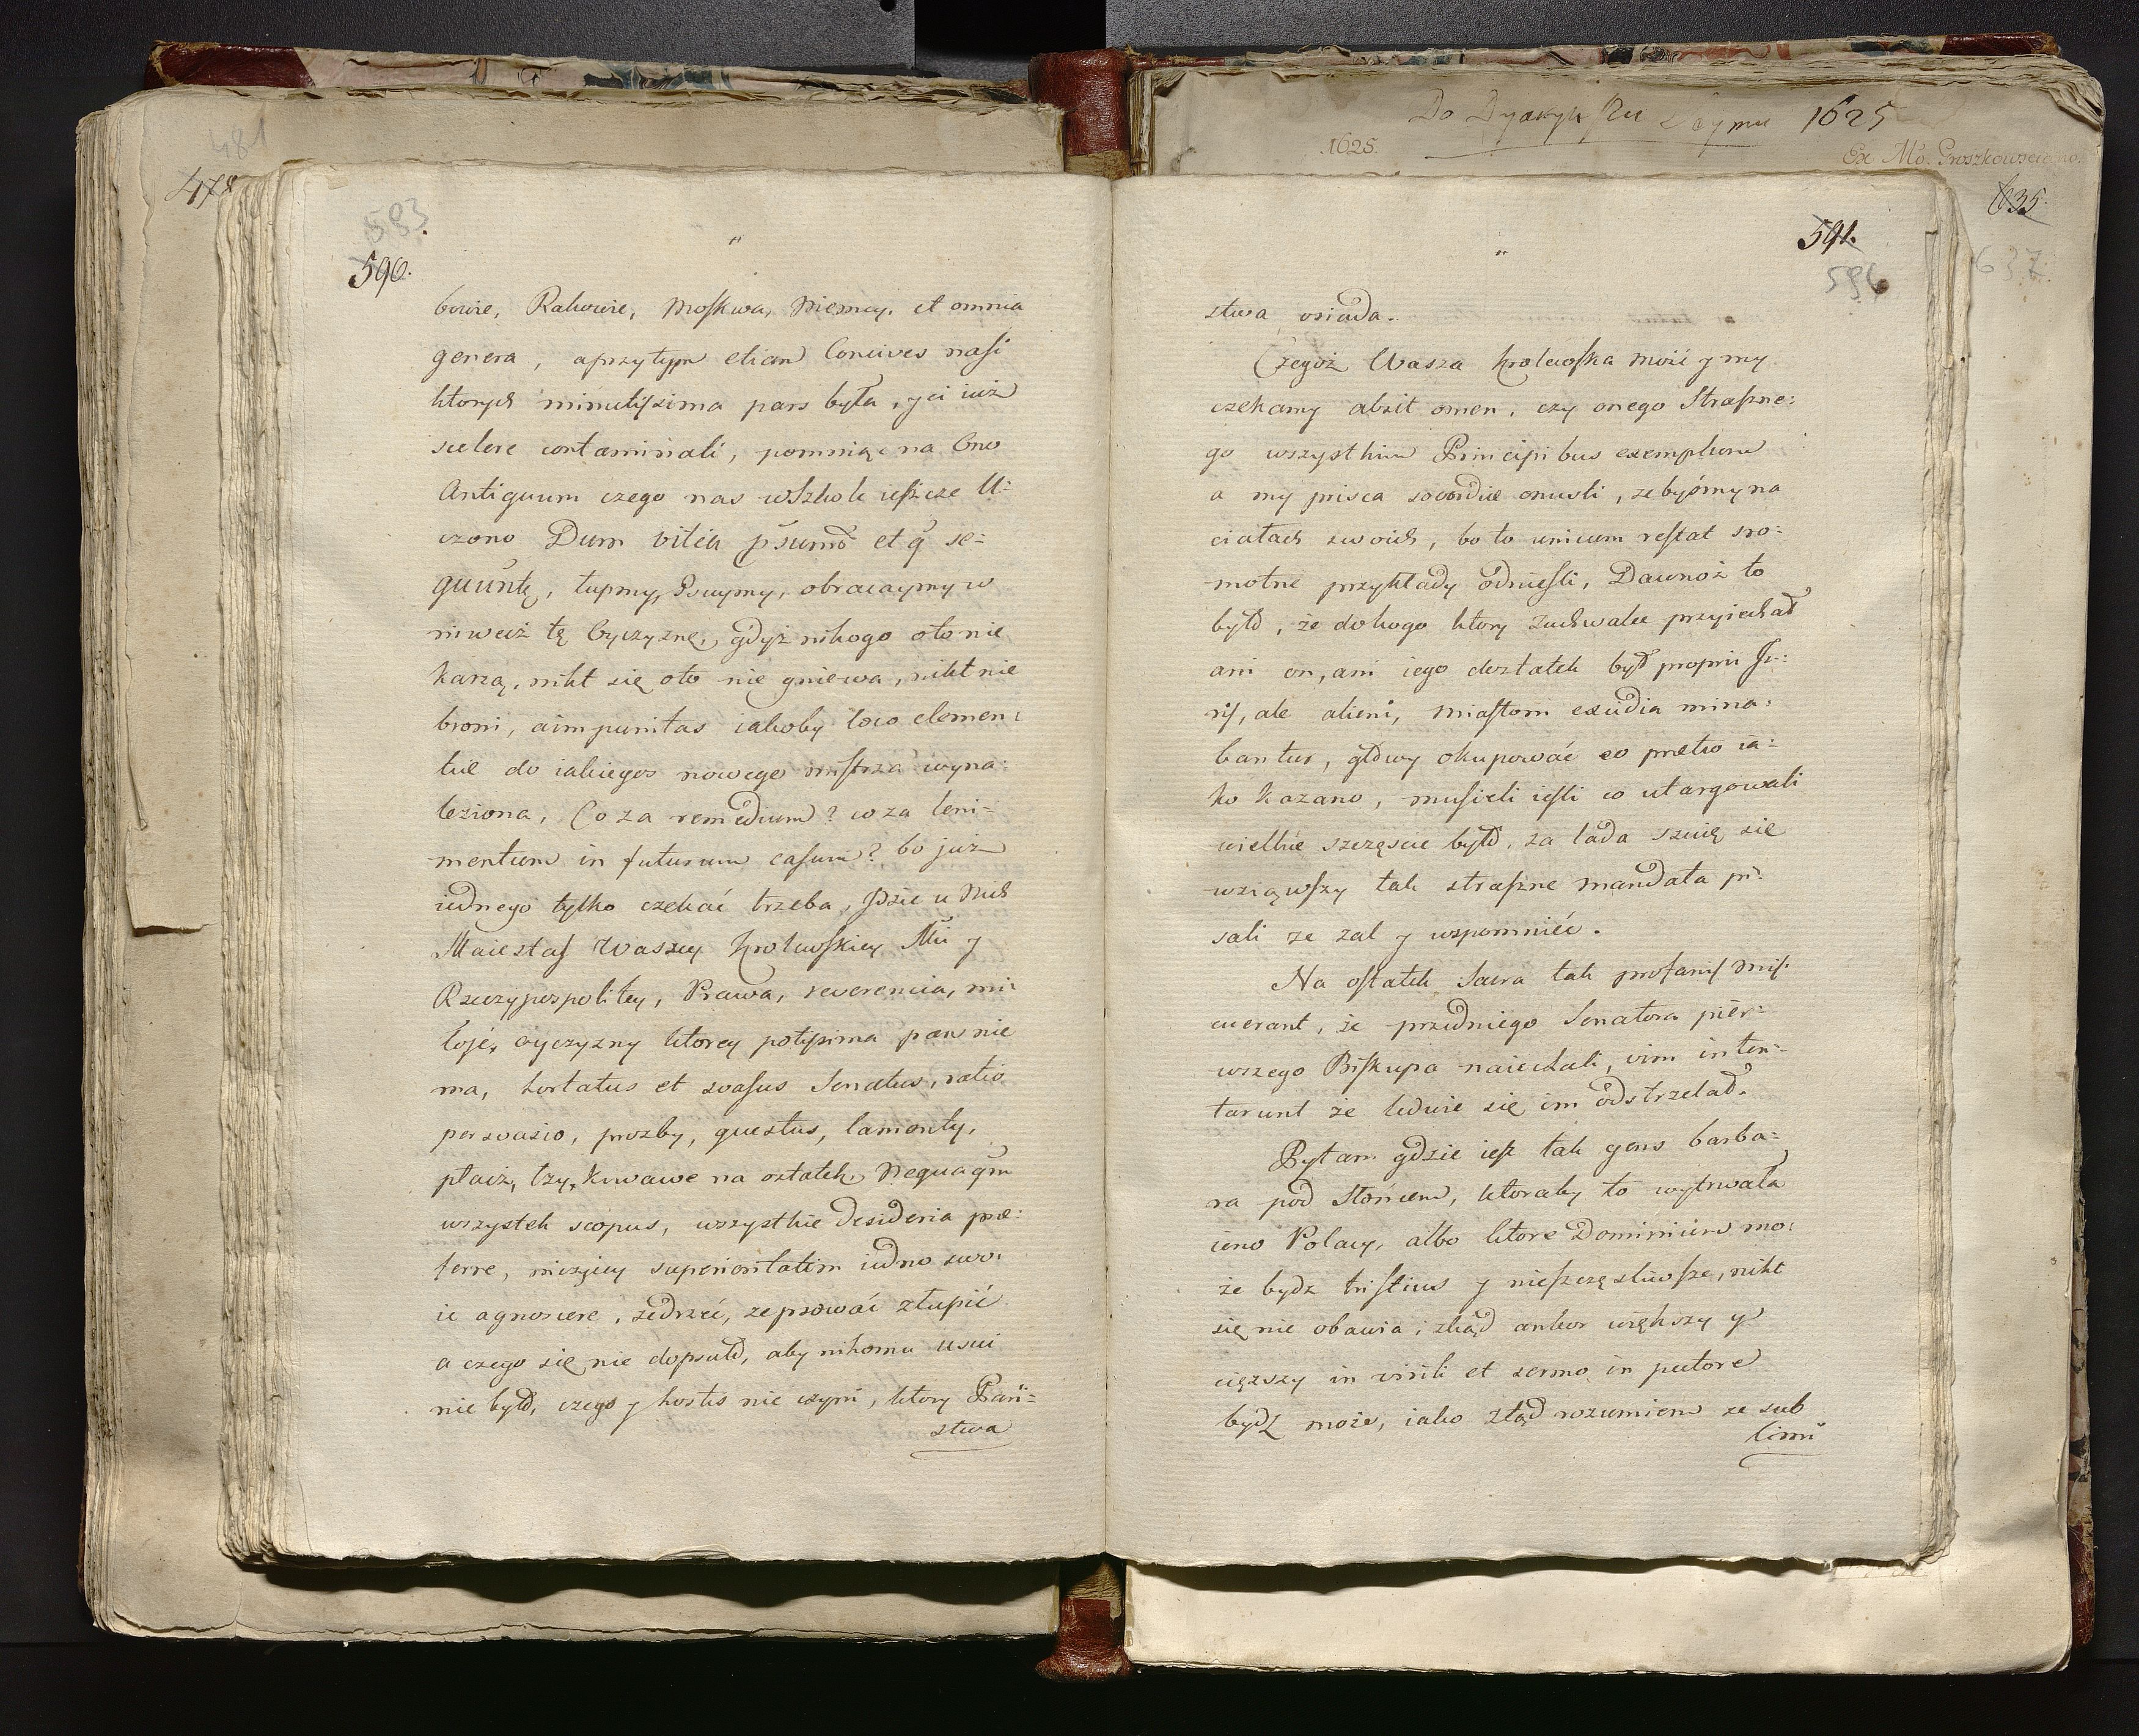 481
478
593.
590.
bowie, Rakowie, Moskwa, Niemcy, et omnia
genera, aprzytym etiam Concives nasi
ktorych minutissima pars była, y ci iuż
scelere contaminati, pomniąc na Ono
Antiquum czego nas wszkole ieszcze U:
czono Dum vitia
quuntę, łupmy, Psuymy, obracaymy w
niwecz tę Oyczyznę, gdyż nikogo oto nie
karzą, nikt się oto nie gniewa, nikt nie
broni, a impunitas iakoby loco clemen:
tiæ do iakiegos nowego mistrza wyna:
leziona, Co za remedium? co za leni=
mentum in futurum casum? bo już
iednego tylko czekać trzeba, gdzie u Nich
Maiestas Waszey Krolewskiey Mci y
Rzeczypospolitey, Prawa, reverencia, mi:
łość oyczyzny ktorey potissima pars nie
ma, hortatus et suasus Senatus, ratio
persvasio, prozby, questus, lamenty,
płacz, łzy, krwawe na ostatek, Nequaqm
wszystek scopus, wszystkie desideria præ:
ferre, niczyiey superioritatem iedno swo:
ie agnoscere, zedrzeć, zepsować złupić
a czego się nie dopsuło, aby nikomu
nie było, czego y hostis nie czyni, ktory Pań=
stwa
Do Dyaryu Szu Seymu 1625
1625.
Ex Mo. Proszkowsciano.
635.
637.
591.
594
stwa osiada.
Czegoż Wasza Krolewska Mość y my
czekamy absit omen, czy onego Straszne:
go wszystkim Principibus exemplum
a my prisca socordiæ onusti, zebyśmy na
ciałach swoich, bo to unicum restat sro:
motne przykłady odnieśli, Dawnoż to
było, że do kogo ktory Zuchwalec przyiechał
ani on, ani iego dostatek był proprii Ju:
ris, ale alieni, miastom exidia mina:
bantur, głowy okupować eo pretio ia:
ko kazano, musieli ieśli co utargowali
wielkie szczęście było, za lada się
wziąwszy tak straszne mandata pi:
sali ze zal y wspomnieć.
Na ostatek Sacra tak profanis mis
cuerant, że przedniego Senatora pier:
wszego Biskupa naiechali, vim inten:
tarunt że ledwie się im odstrzelał.
Pytam gdzie iest tak gens barba=
ra pod Słońcem, ktoraby to wytrwała
ieno Polacy, albo ktore Dominium mo:
że bydz tristius y nieszczęśliwsze, nikt
się nie obawia, zkąd ankor większy y
cięższy in virili et sermo in pectore
bydź może, iako ztąd rozumiem ze sub
limi